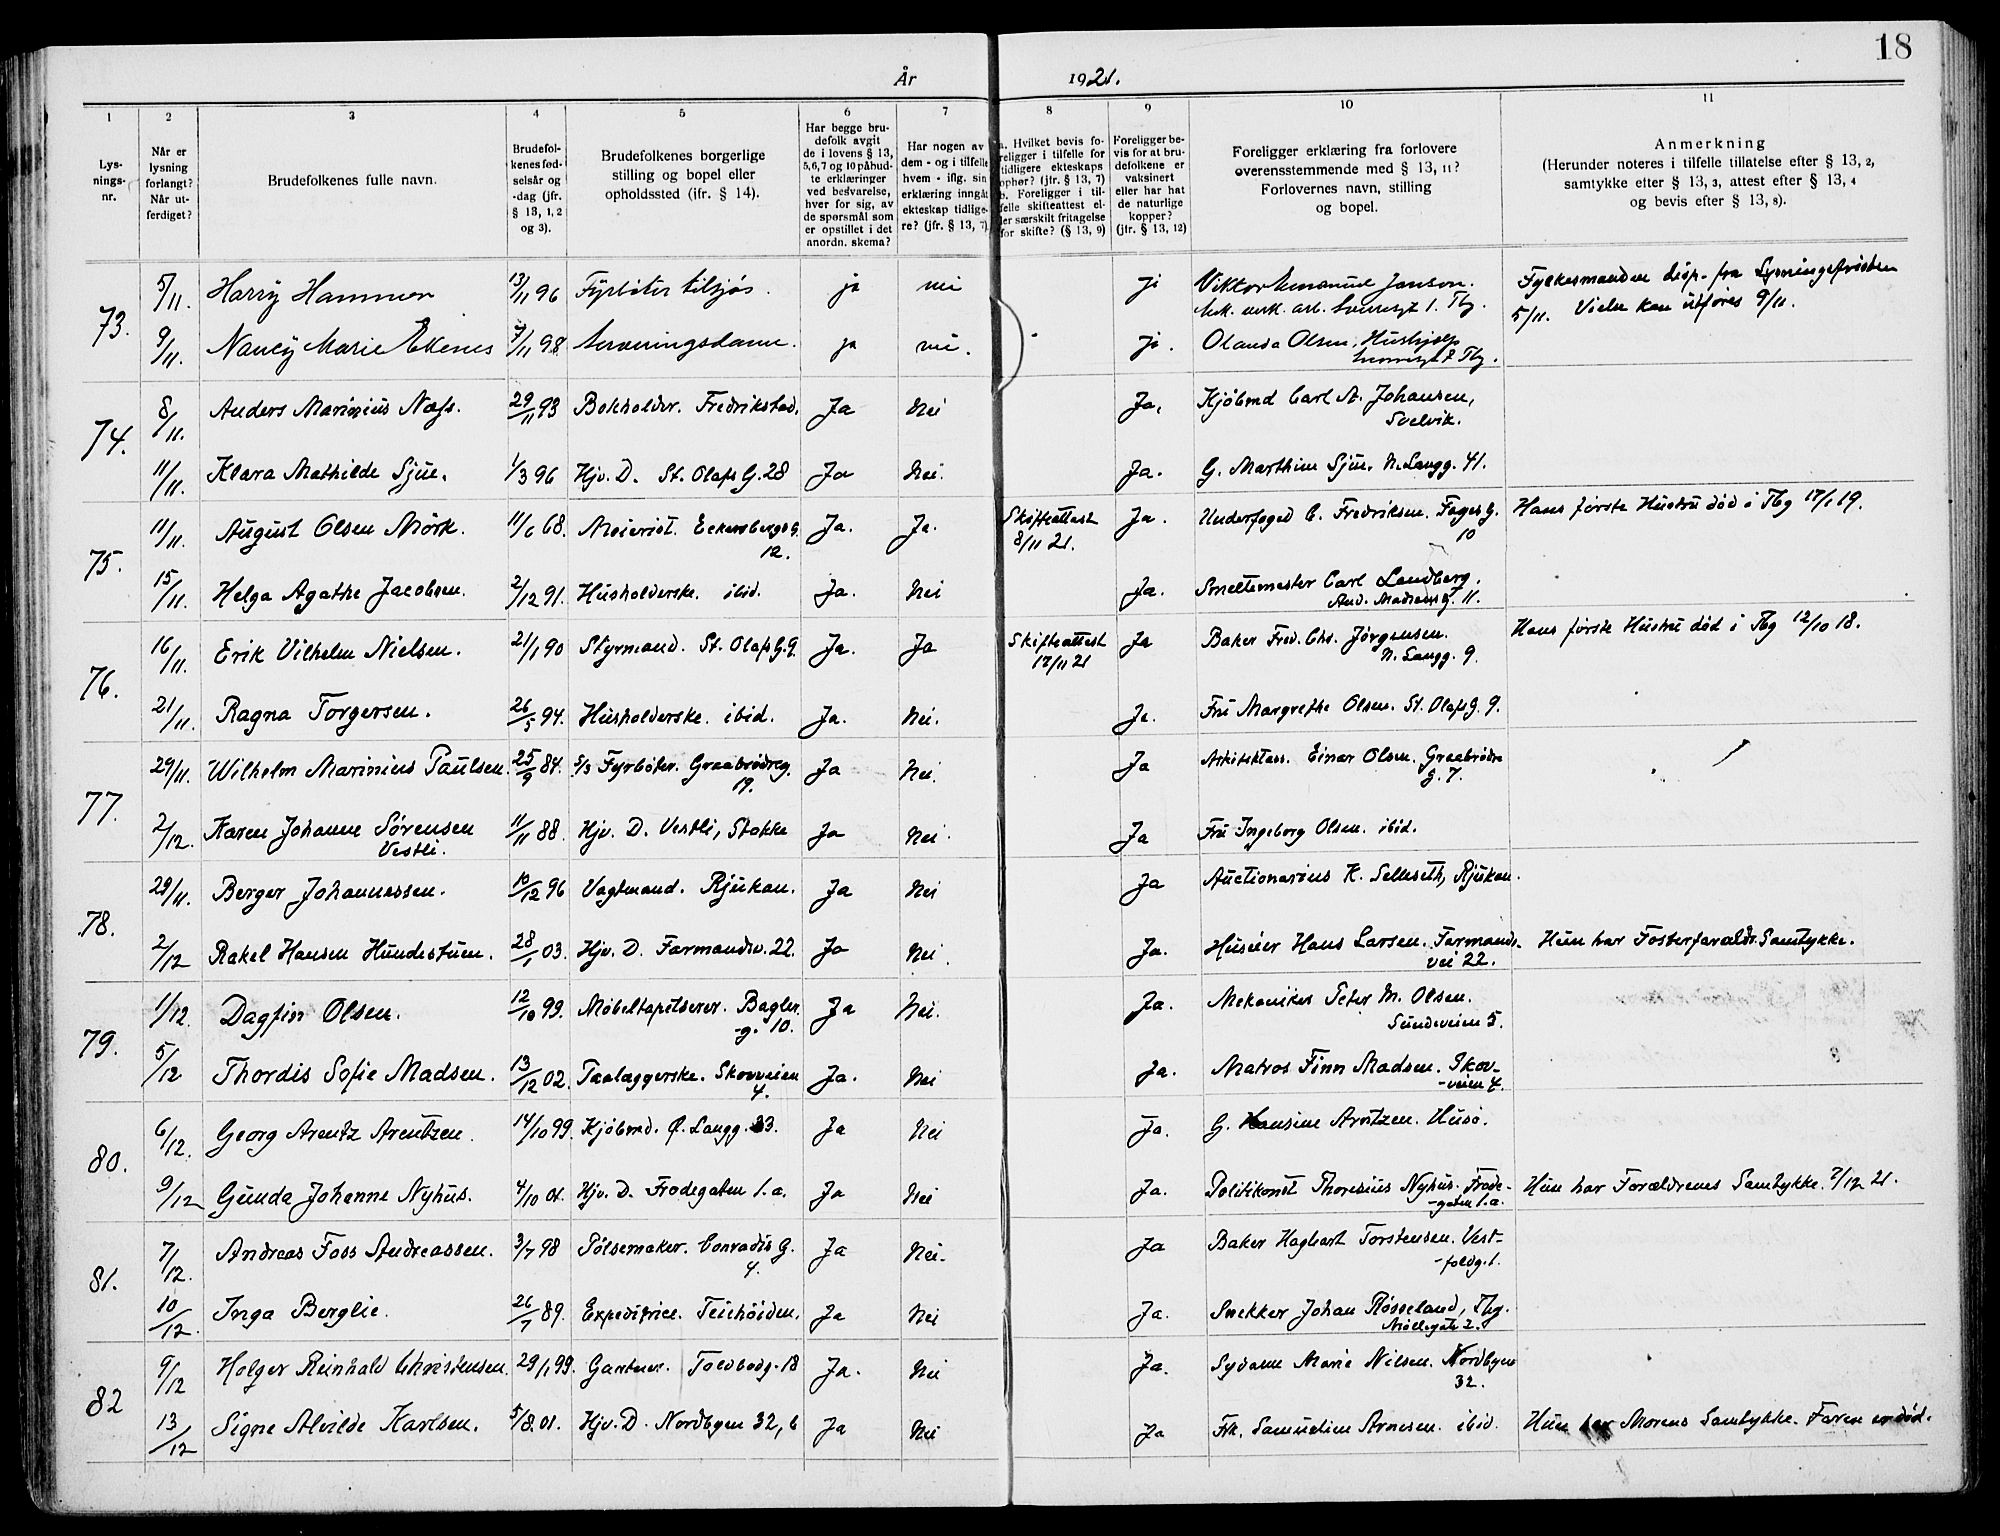 18
År 1921.
1 2 3 4 5 6 7 8 9 10 11
Lysnings-nr.
Når er lysning forlangt? Når utferdiget?
Brudefolkenes fulle navn.
Brudefolkenes fødselsår og -dag (jfr. § 13, 1, 2 og 3).
Brudefolkenes borgerlige stilling og bopel eller opholdssted (ifr. § 14).
Har begge brudefolk avgit de i lovens § 13, 5,6,7 og 10 påbudte erklæringer ved besvarelse, hver for sig, av de spørsmål som er opstillet i det anordn. skema?
Har nogen av dem - og i tilfelle hvem - iflg. sin erklæring inngått ekteskap tidligere? (jfr. § 13, 7)
a. Hvilket bevis foreligger i tilfelle for tidligere ekteskaps ophør? (jfr. § 13, 7) b. Foreligger i tilfelle skifteattest eller særskilt fritagelse for skifte? (§ 13, 9)
Foreligger bevis for at brudefolkene er vaksinert eller har hat de naturlige kopper? (jfr. § 13, 12)
Foreligger erklæring fra forlovere overensstemmende med § 13, 11? Forlovernes navn, stilling og bopel.
Anmerkning (Herunder noteres i tilfelle tillatelse efter § 13, 2, samtykke efter § 13, 3, attest efter § 13, 4 og bevis efter § 13, 8).
73. 5/11. Harry Hammer 13/11 96 Fyrbøter tilsjøs. ja nei ja Viktor Emanuel Jonson. Fylkesmanden disp. fra Lysningsfristen
5/11. Vielse kan utføres 9/11.
9/11. Nancy Marie Ekenes 7/11 98 Serveringsdame. ja nei. ja. Olanda Olsen, Hushjelp
74. 8/11. Anders Marinius Næss. 29/11 93 Bokholder. Fredrikstad. Ja Nei Ja, Kjøbmd Carl A. Johansen,
Svelvik.
11/11. Klara Mathilde Sjue. 1/3 96 Hjv. D. St. Olafs G. 28 Ja Nei. Ja. G. Marthin Sjue. N. Langg. 41.
75. 11/11. August Olsen Mørk. 11/6 68. Meierist. Eckersbergs G. 12. Ja. Ja. Skifteattest 8/11 21. Ja. Underfoged C. Fredriksen. Fayes G. 10 Hans første Hustru død i Tbg 17/1 19.
15/11. Helga Agathe Jacobsen. 2/12 91. Husholderske. ibid. Ja. Nei Ja. Smeltemester Carl Lundberg.
And. Madsens G. 11.
76. 16/11. Erik Vilhelm Nielsen. 21/1 90 Styrmand. St. Olafs G. 9. Ja. Ja Skifteattest 17/11 21 Ja Baker Fred. Chr. Jørgensen. N. Langg. 9. Hans første Hustru død i Tbg 12/10 18.
21/11. Ragna Torgersen. 26/5 94. Husholderske. ibid. Ja. Nei. Ja. Fru Margrethe Olsen. St. Olafs G. 9.
77. 29/11. Wilhelm Marinius Paulsen. 25/9 84. s/s Fyrbøter. Graabrødreg. 19. Ja Nei. Ja Arkitektass. Einar Olsen. Graabrødre G. 7.
2/12. Karen Johanne Sørensen Vestli. 11/11 88. Hjv. D. Vestli, Stokke Ja Nei. Ja Fru Ingeborg Olsen. ibid.
78. 29/11. Berger Johannessen. 10/12 96 Vagtmand. Rjukan. Ja Nei Ja Auctionarius K. Selleseth, Rjukan.
2/12 Rakel Hansen Hundestuen. 28/1 03. Hjv. D. Farmandsv. 22. Ja Nei. Ja. Huseier Hans Larsen. Farmands-vei 22. Hun har Fosterforældr. Samtykke.
79. 1/12. Dagfin Olsen. 12/10 99. Møbeltapetserer. Bagler-g. 10. Ja Nei. Ja. Mekaniker Peter M. Olsen.
Sundeveien 5.
5/12 Thordis Sofie Madsen. 13/12 02. Taalæggerske. Skovveien 4. Ja. Nei Ja. Matros Finn Madsen. Skov-veien 4.
80. 6/12. Georg Arentz Arentzen. 14/10 99. Kjøbmd. Ø. Langg. 33. Ja Nei Ja. G. Hansine Arntzen. Husø.
9/12 Gunda Johanne Nyhus. 4/10 01. Hjv. D. Frodegaten 1.a. Ja Nei Ja. Politikonst Thoresius Nyhus. Frode-gaten 1.a. Hun har Forældrenes Samtykke. 7/12 21.
81. 7/12. Andreas Foss Andreassen. 3/7 98 Pølsemaker. Conradis G. 4. Ja Nei. Ja Baker Hagbart Torstensen. Vest-foldg. 1.
10/12. Inga Berglie. 26/7 89. Expeditrice. Teiehøiden. Ja Nei Ja. Snekker Johan Røsseland, Tbg.
Møllegate 2.
82 9/12 Holger Reinhald Christensen. 29/1 99. Gartner. Toldbodg. 18 Ja. Nei Ja. Sydame Marie Nilsen. Nordbyen 32.
13/12 Signe Alvilde Karlsen. 5/8 01. Hjv. D. Nordbyen 32, b Ja Nei Ja Frk. Samueline Arnesen. ibid. Hun har Morens Samtykke. Faren er død.